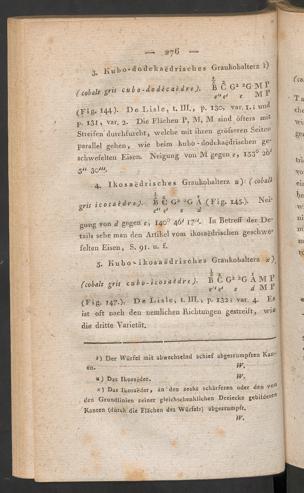 — 276 —
3. Kubo-dodekaëdrisches Graukobaltera t)
(cobalt gris cubo-dodécaèdre). B C G² ²G M P
M P
(Fig. 144.) De Lisle, t. III., p. 130, var. 1.; und
p. 131, var. 2. Die Flächen P, M, M sind öfters mit
Streifen durchfurcht, welche mit ihren größeren Seiten
parallel gehen, wie beim kubo-dodekaëdrischen ge-
schwefelten Eisen. Neigung von M gegen e, 153° 26'
5" 30'''.
4. Ikosaëdrisches Graukobalterz u) (cobalt
gris icosaèdre). B C G² ²G A (Fig. 145.). Nei-
gung von d gegen e, 140° 46' 17". In Betreff der De-
tails sehe man den Artikel vom ikosaëdrischen geschwe-
felten Eisen, S. 91. u. f.
5. Kubo-ikosaëdrisches Graukobalterz x)
(cobalt gris cubo-icosaèdre). B C G² ²G A M P
d M P
(Fig. 147.). De Lisle, t. III., p. 132; var. 4. Es
ist oft nach den nemlichen Richtungen gestreift, wie
die dritte Varietät.
t) Der Würfel mit abwechselnd schief abgestumpften Kan-
en. W.
u) Das Ikosaëder. W.
x) Das Ikosaëder, an den sechs schärferen oder den von
den Grundlinien seiner gleichschenklichen Dreiecke gebildeten
Kanten (durch die Flächen des Würfels) abgestumpft.
W.